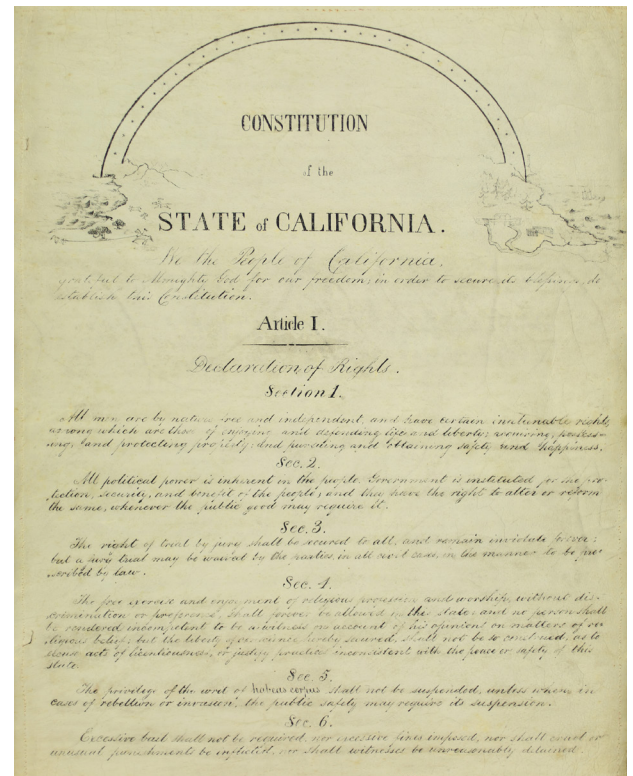 CONSTITUTION
of the
STATE of CALIFORNIA.
We the People of California,
grateful to Almighty God for our freedom, in order to secure its blessings, do
establish this Constitution.
Article I.
Declaration of Rights.
Section 1.
All men are by nature free and independent, and have certain inalienable rights,
among which are those of enjoying and defending life and liberty; acquiring, possess-
ing, and protecting property; and pursuing and obtaining safety and happiness.
Sec. 2.
All political power is inherent in the people. Government is instituted for the pro-
tection, security, and benefit of the people; and they have the right to alter or reform
the same, whenever the public good may require it.
Sec. 3.
The right of trial by jury shall be secured to all, and remain inviolate forever;
but a jury trial may be waived by the parties, in all civil cases, in the manner to be pre-
scribed by law.
Sec. 4.
The free exercise and enjoyment of religious profession and worship, without dis-
crimination or preference, shall forever be allowed in this state: and no person shall
be rendered incompetent to be a witness on account of his opinions on matters of re-
ligious belief; but the liberty of conscience, hereby secured, shall not be so construed, as to
acts of licentiousness, or justify practices inconsistent with the peace or safety of this
state.
Sec. 5.
The privilege of the writ of habeas corpus shall not be suspended, unless when, in
cases of rebellion or invasion, the public safety may require its suspension.
Sec. 6.
Excessive bail shall not be required, nor excessive fines imposed, nor shall cruel or
unusual punishments be inflicted, nor shall witnesses be unreasonably detained.